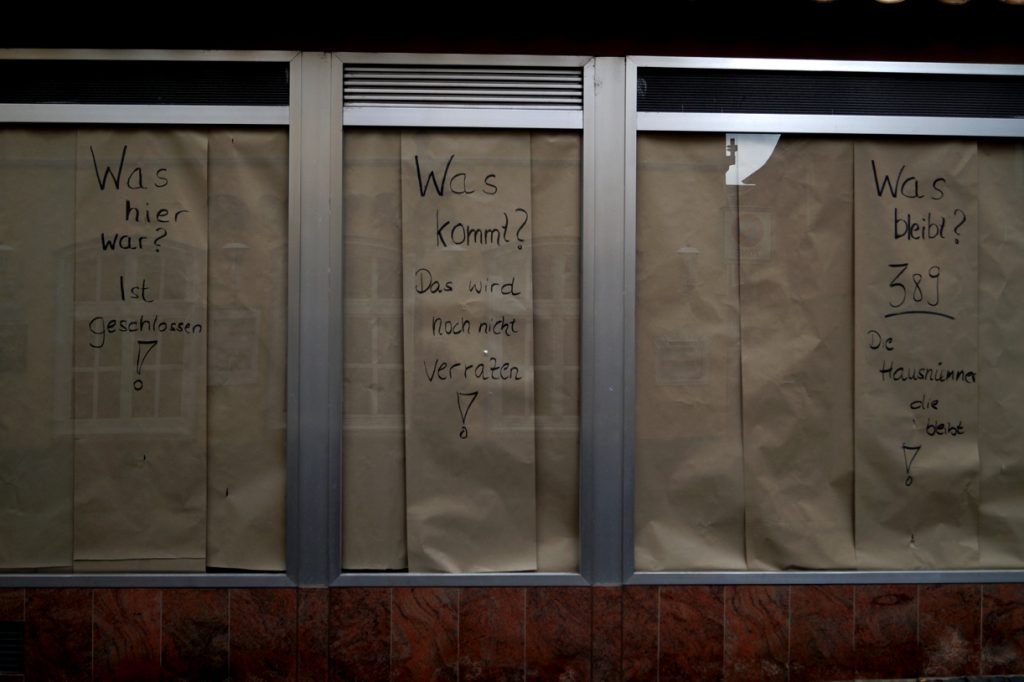 Was
hier
war?
Ist
geschlossen
!
Was
kommt?
Das wird
noch nicht
verraten
!
Was
bleibt?
389
De
Hausnümmer
die
bleibt
!